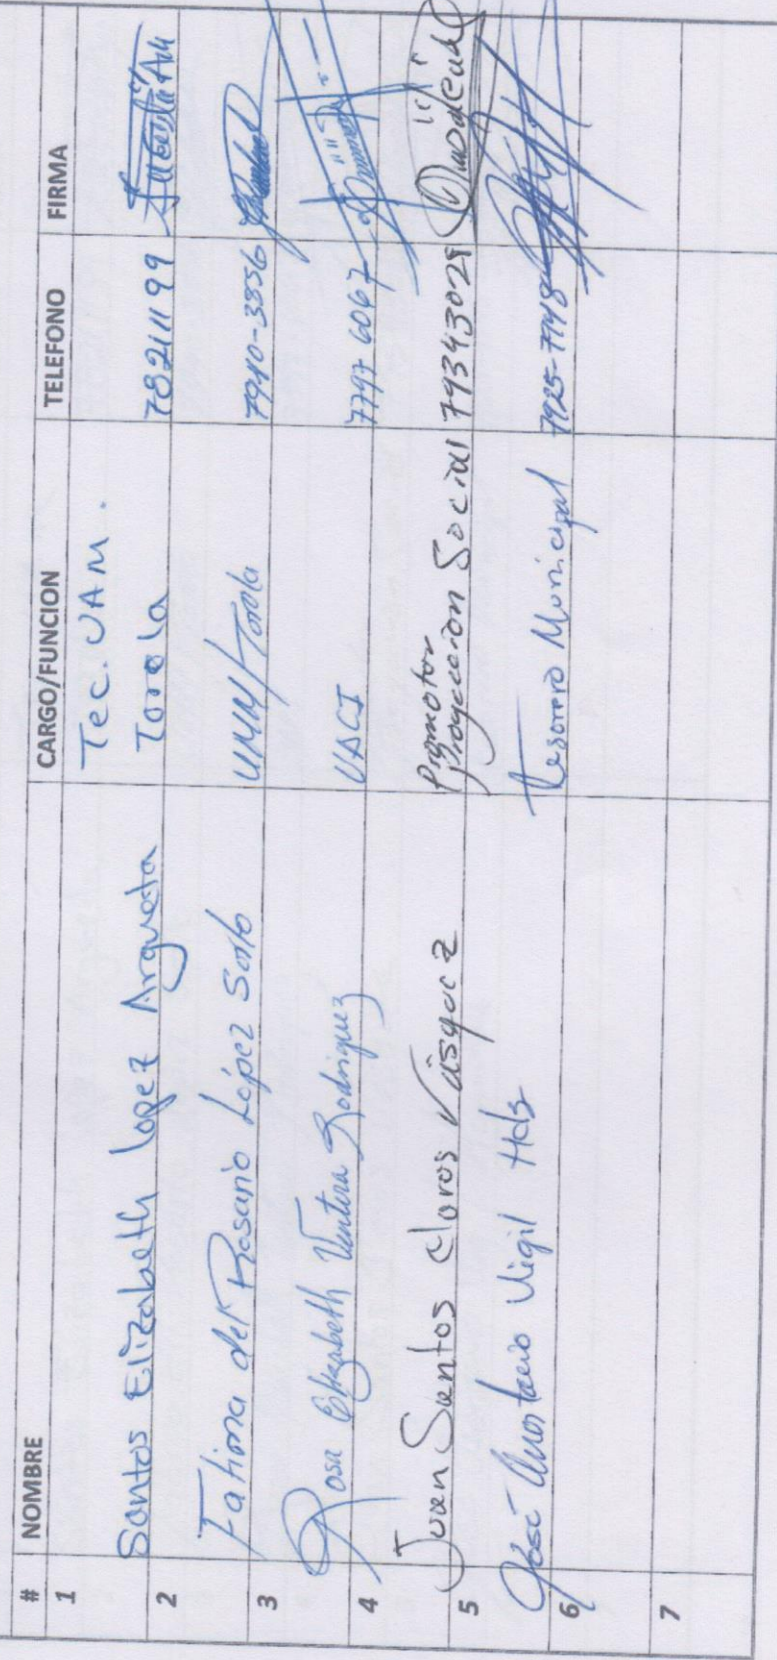 # NOMBRE CARGO/FUNCION TELEFONO FIRMA
1 Santos Elizabeth Lopez Argueta Tec. UAM. Torola 78211199
2 Fatima del Rosario López Sorto UMM/Torola 7940-3856
3 Rosa Elizabeth Ventura Rodriguez UACI 7797 6067
4 Juan Santos Claros Vásquez Promotor Proyeccion Social 79343029
5 José Anastacio Vigil Hdz Tesorero Municipal 7925-7748
6
7